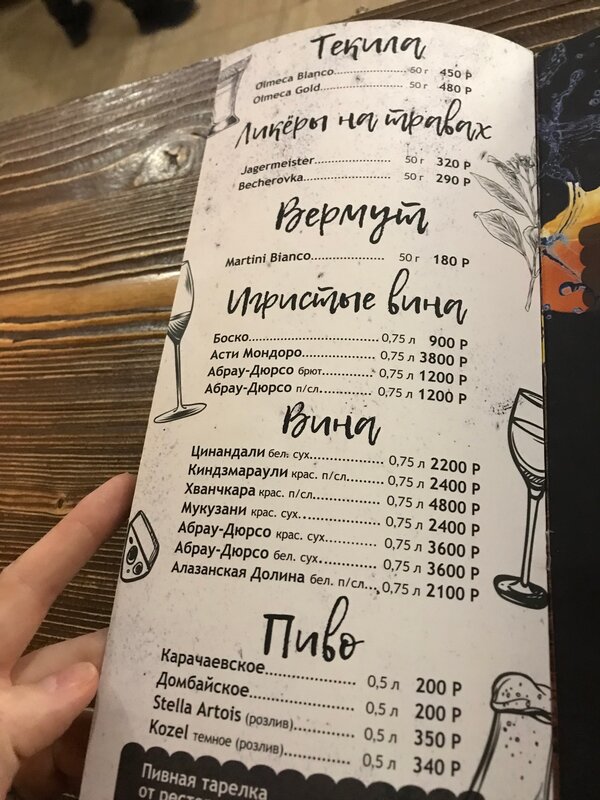 Текила
Olmeca Bianco........................ 50 г 450 Р
Olmeca Gold........................ 50 г 480 Р
Ликёры на травах
Jagermeister........................ 50 г 320 Р
Becherovka........................ 50 г 290 Р
Вермут
Martini Bianco........................ 50 г 180 Р
Игристые вина
Боско........................ 0,75 л 900 Р
Асти Мондоро........................ 0,75 л 3800 Р
Абрау-Дюрсо брют........................ 0,75 л 1200 Р
Абрау-Дюрсо п/сл........................ 0,75 л 1200 Р
Вина
Цинандали бел. сух........................ 0,75 л 2200 Р
Киндзмараули крас. п/сл........................ 0,75 л 2400 Р
Хванчкара крас. п/сл........................ 0,75 л 4800 Р
Мукузани крас. сух........................ 0,75 л 2400 Р
Абрау-Дюрсо крас. сух........................ 0,75 л 3600 Р
Абрау-Дюрсо бел. сух........................ 0,75 л 3600 Р
Алазанская Долина бел. п/сл.... 0,75 л 2100 Р
Пиво
Карачаевское........................ 0,5 л 200 Р
Домбайское........................ 0,5 л 200 Р
Stella Artois (розлив)........................ 0,5 л 350 Р
Kozel темное (розлив)........................ 0,5 л 340 Р
Пивная тарелка
от